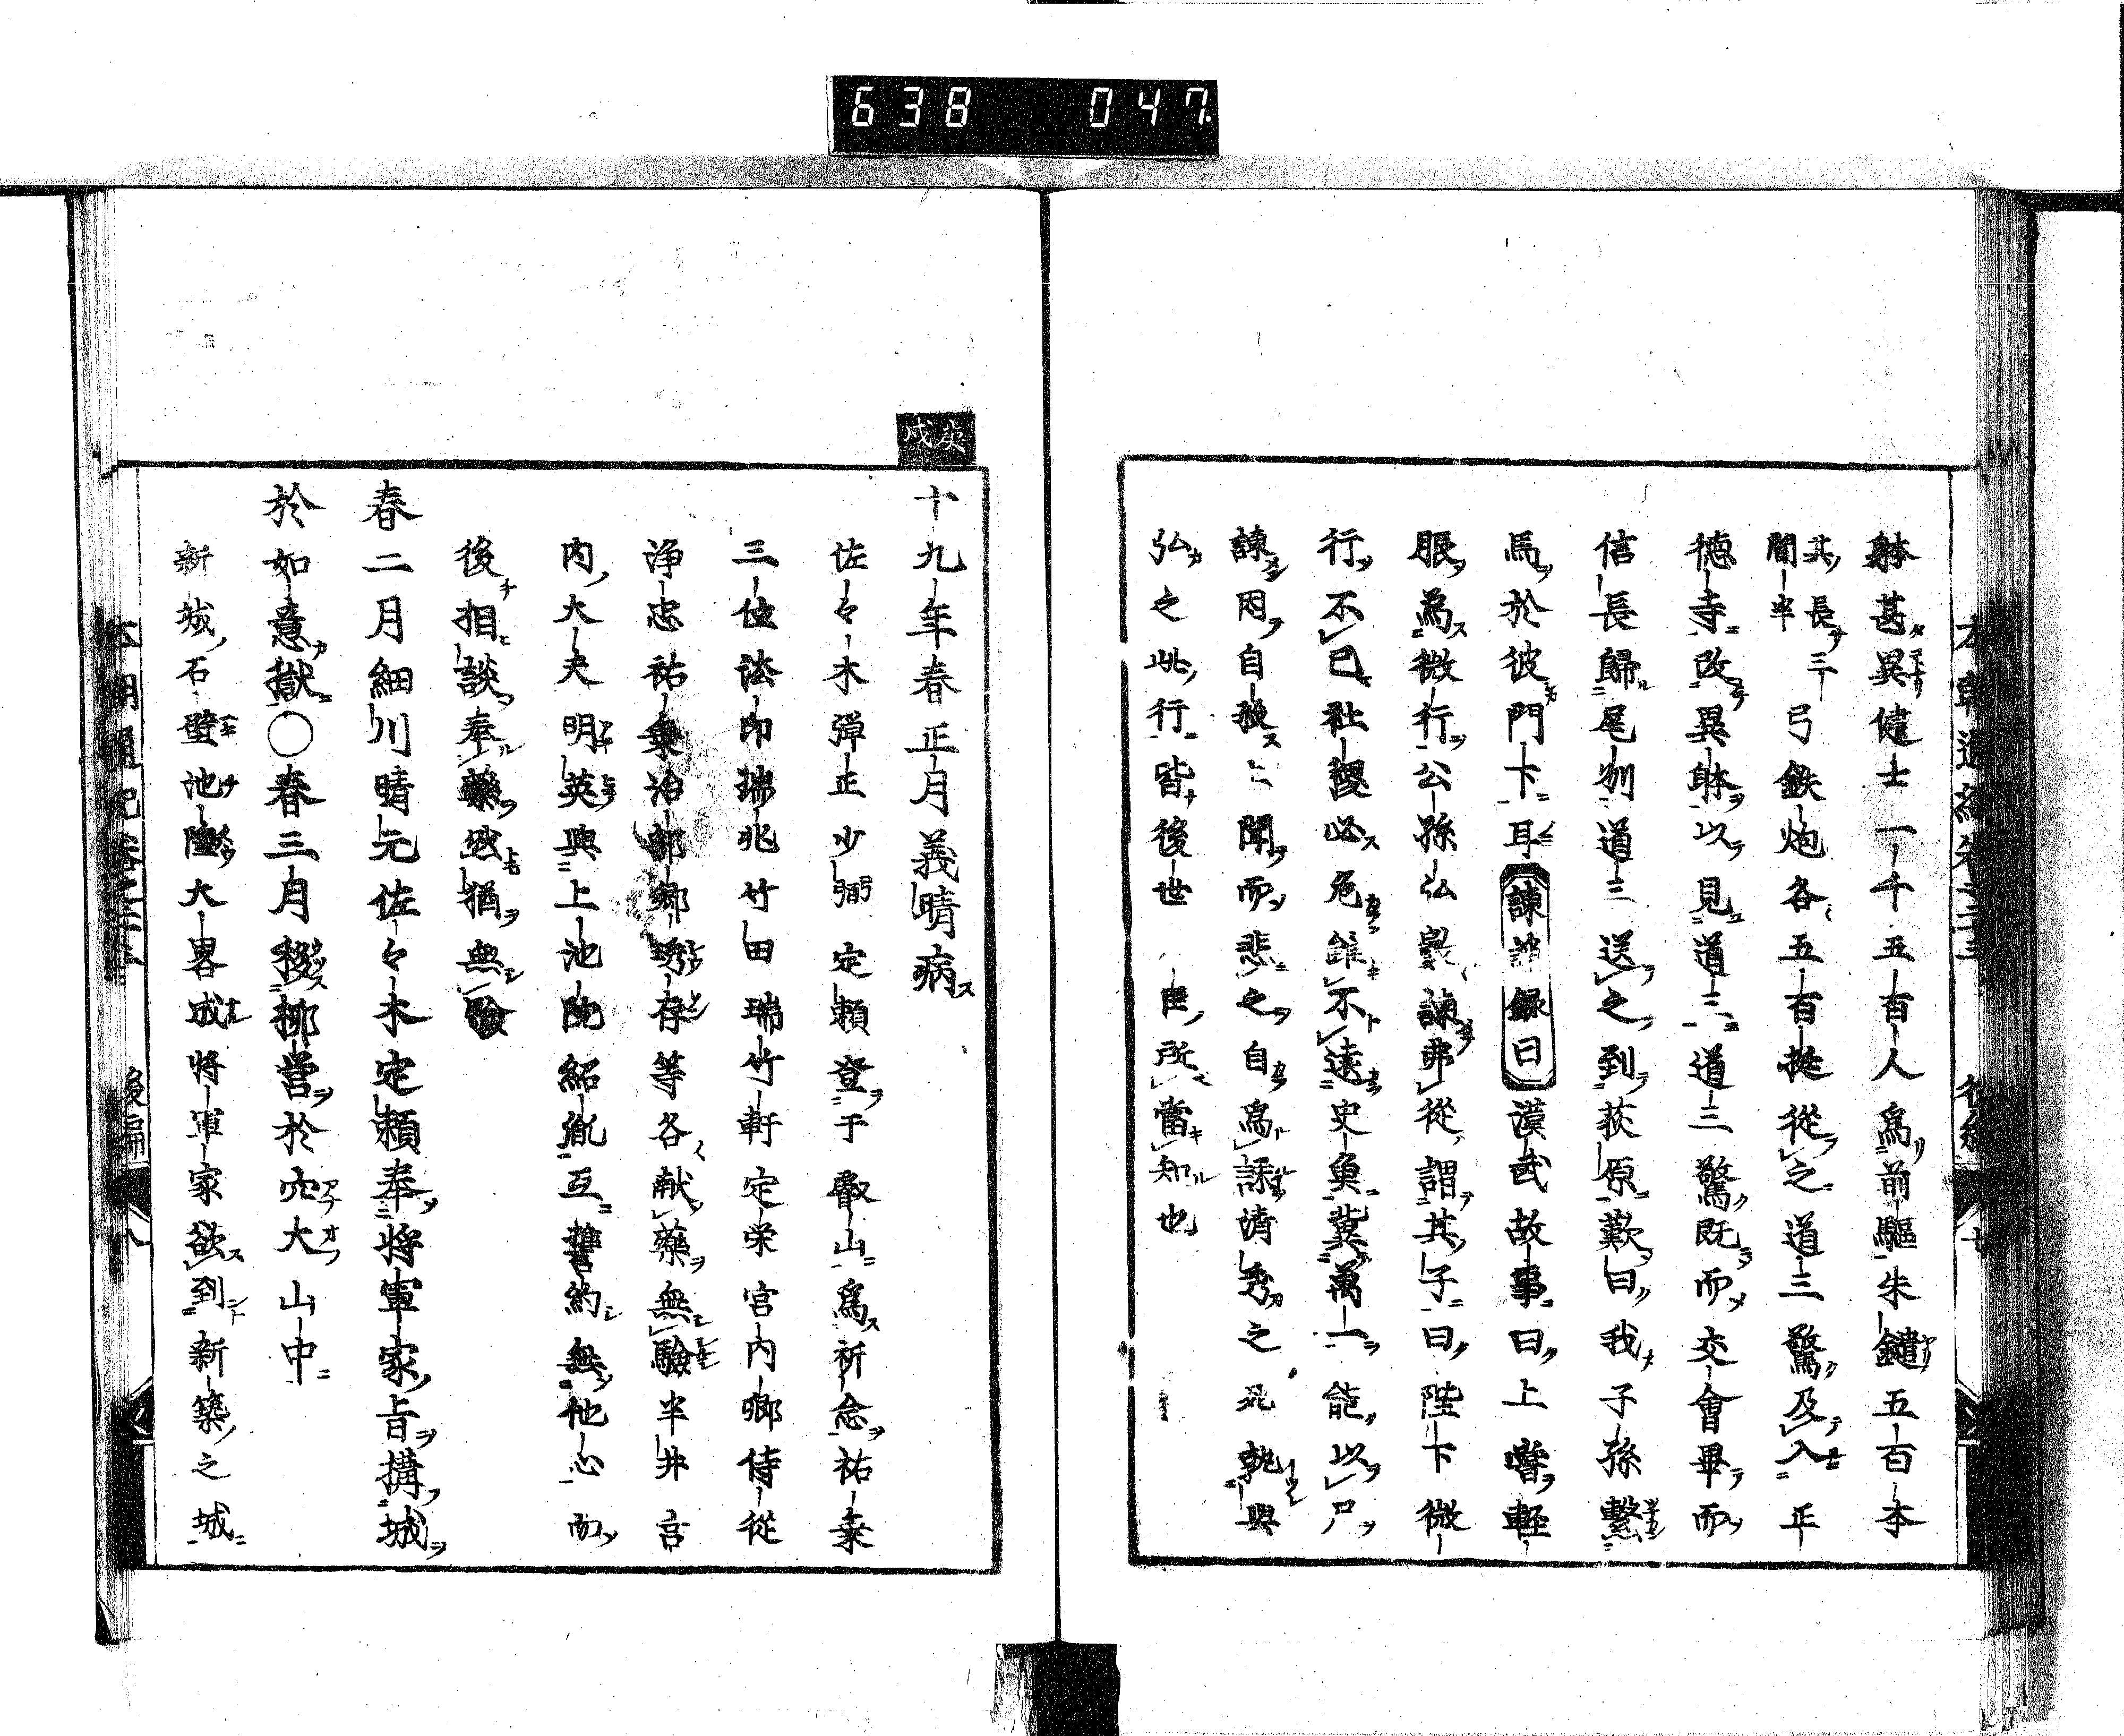 638 047
躰甚異健士一千五百人爲前驅朱鑓五百本
其長三間半弓鉄炮各五百挺從之道三驚及入平
德寺改異躰以見道三道三驚既而交會畢而
信長歸尾州道三送之到荻原歎曰我子孫繫
馬於彼門下耳諫諍録曰漢武故事曰上嘗輕
服爲微行公孫弘數諫弗從謂其子曰陛下微
行不已社稷必危雖不遠史魚冀萬一能以尸
諫因自殺上聞而悲之自爲誄清秀之死乾與
弘之此行皆後世臣所當知也
庚戌
十九年春正月義晴病
佐々木彈正少弼定頼登于叡山爲祈念祐乗
三位法印瑞兆竹田瑞竹軒定栄宮内卿侍從
浄忠祐乗治部卿璓存等各献藥無驗半井宮
内大夫明英與上池院紹胤互誓約無他心而
後相談奉藥然猶無驗
春二月細川晴元佐々木定頼奉將軍家旨搆城
於如意嶽〇春三月移柳營於穴大山中
新城石壁池隍大畧成將軍家欲到新築之城
本朝通紀卷之二十三 後編 八